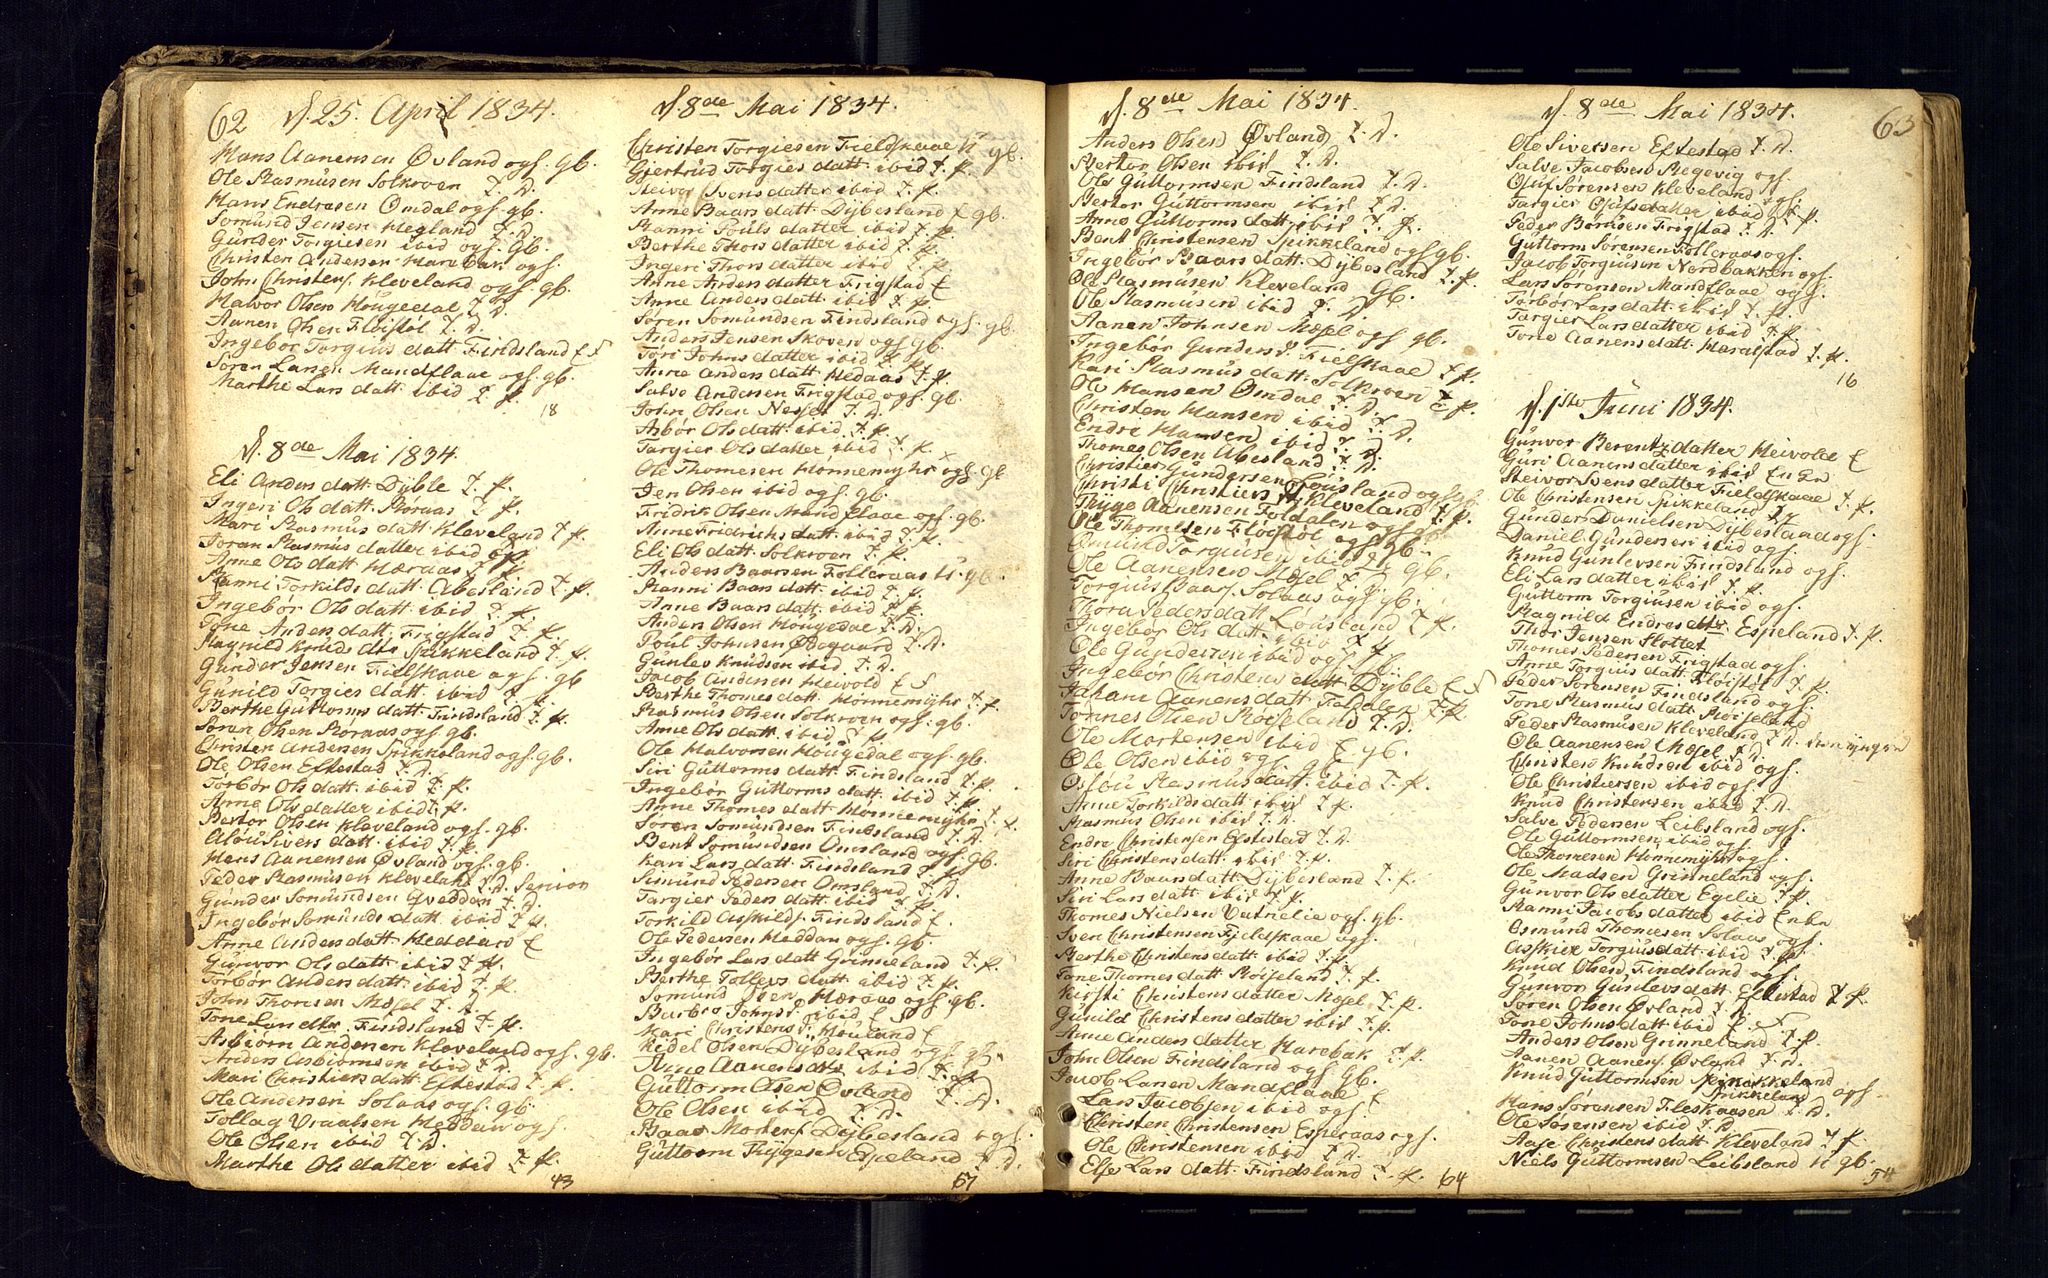 62 d. 25. April 1834.
Hans Aanensen Øvland ogs. gb.
Ole Rasmusen Solkroen T. D.
Hans Endresen Omdal ogs. gb.
Somund Jensen Hegland T. D.
Gunder Torgiesen ibid ogs. gb.
Christen Andersen Harebak ogs.
John Christens. Kleveland ogs. gb.
Halvor Olsen Hougedal T. D.
Aanen Olsen Fløistøl T. D.
Ingebor Torgius datt Findsland E S
Søren Larsen Mandflaae ogs. gb.
Marthe Lars datt ibid T. p.
18
d. 8de Mai 1834.
Eli Anders datt. Dyble T. p.
Ingeri Ols datt. Roraas T. p.
Mari Rasmus datt. Kleveland T. p.
Joran Rasmus datter ibid T. p.
Anne Ols datt Hæraas T. p.
Ranni Torkilds datt. Abesland T. p.
Ingebor Ols datt ibid T. p.
Tone Anders datt. Frigstad T. p.
Ragnild Knuds dtr Spikkeland T. p.
Gunder Jensen Fielskaae ogs. gb
Gunild Torgies datt. ibid T. p.
Berthe Guttorms datt. Findsland T. p.
Søren Olsen Roraas ogs. gb.
Christen Andersen Spikkeland ogs. gb.
Ole Olsen Eftestad T. D.
Torbor Ols datt. ibid T. p.
Anne Ols datter ibid T. p.
Bertor Olsen Kleveland ogs. gb.
Alou Sivers datt. ibid T. p.
Hans Aanensen Øvland ogs. gb.
Peder Rasmusen Kleveland T. D. Senior
Gunder Somundsen Qveddan T. D.
Ingebor Somunds datt ibid T. p.
Anne Anders datt. Heddan E
Gunvor Ols datt. ibid T. p.
Torbor Anders datt. ibid T. p.
John Thorsen Mosel T. D.
Tone Lars dtr. Findsland T. p.
Asbiorn Andersen Kleveland ogs. gb.
Anders Asbiornsen ibid T. D.
Mari Christens datt. Eftestad T. p.
Ole Andersen Solaas ogs. gb.
Tollag Vraalsen Heddan ogs.
Ole Olsen ibid T. D.
Marthe Ols datter ibid T. p.
43
d. 8de Mai 1834.
Christen Torgiesen Fielskaae H gb.
Giertrud Torgies datt ibid T. p.
Steivor Svens datter ibid T. p.
Anne Baars datt. Dybesland E gb.
Ranni Pouls datter ibid T. p.
Berthe Thors datter ibid T. p.
Ingeri Thors datter ibid T. p.
Anne Anders datter Frigstad E
Anne Anders datt. ibid T. p.
Søren Somundsen Findsland ogs. gb.
Anders Jensen Skoven ogs gb.
Tori Johns datter ibid T. p.
Anne Anders datt Hedaas T. p.
Salve Andersen Frigstad ogs. gb.
John Olsen Nesset T. D.
Asbor Ols datt. ibid T. p.
Targier Ols datter ibid T. p.
Ole Thomesen Honnemyhr ogs. gb
Jen Olsen ibid ogs. gb.
Fridrik Olsen Mandflaae ogs. gb.
Anne Fridrichs datt. ibid T. p.
Eli Ols datt Solkroen T. p.
Anders Baarsen Tolleraas U. gb.
Ranni Baars datt. ibid T. p.
Anne Baars datt. ibid T. p.
Anders Olsen Hougedal T. D.
Poul Johnsen Ødegaard T. D.
Gunlev Knudsen ibid T. D.
Jacob Andersen Heivold E S
Berthe Thomes datt. Honnemyhr T. p.
Rasmus Olsen Solkroen ogs. gb.
Anne Ols datt. ibid T. p.
Ole Halvorsen Hougedal ogs. gb.
Siri Guttorms datt. Findsland T. p.
Ingebor Guttorms datt. ibid T. p.
Anne Thomes datt Honnemyhr T. p.
Søren Somundsen Findsland T. D.
Bent Somundsen Omsland ogs. gb.
Kari Lars datt. Findsland T. p.
Simund Pedersen Omsland T. D.
Targier Peders datt. ibid T. p.
Torkild Askilds. Findsland E
Ole Pedersen Heddan ogs. gb.
Ingebor Lars datt Grinneland T. p.
Berthe Tollevs datt ibid T. p.
Somund Olsen Hæraas ogs. gb.
Barbro Johns d ibid E S
Kari Christens d Houland E
Kedel Olsen Dybesland ogs. gb.
Anne Aanens dtr ibid T. p.
Guttorm Olsen Øvland T. D.
Ole Olsen ibid T. D.
Baar Mortens. Dybesland ogs.
Guttorm Thygesen Espeland T. D.
67
d. 8de Mai 1834.
Anders Olsen Øvland T. D.
Bertor Olsen ibid T. D.
Ole Guttormsen Findsland T. D.
Bertor Guttormsen ibid T. D.
Anne Guttorms datt. ibid T. p.
Bent Christensen Spikkeland ogs gb.
Ingebor Baars datt. Dybesland T. p.
Ole Rasmusen Kleveland Gb.
Ole Rasmusen ibid T. D.
Aanen Johnsen Mosel ogs gb.
Ingebor Gunders d. Fielskaae T. p.
Kari Rasmus datt. Solkroen T. p.
Ole Hansen Omdal T. D.
Christen Hansen ibid T. D.
Endre Hansen ibid T. D.
Thomes Olsen Abesland T. D.
Christen Gundersen Lousland ogs gb
Christi Christiens d. Kleveland T. p.
Thyge Aanensen Foldalen ogs gb
Ole Thomesen Fløistøl ogs gb
Omund Torgiusen ibid ogs gb.
Ole Aanensen Mosel T. D. gb.
Torgius Baars. Solaas ogs gb.
Thora Peders datt Lousland T. p.
Ingebor Ols datt. ibid T. p.
Ole Gundersen ibid ogs. gb.
Ingebor Christens datt. Dyble E S
Johani Aanens datt Foldalen T. p.
Tonnes Olsen Roiseland T. D.
Ole Mortensen ibid E gb.
Ole Olsen ibid ogs. gb
Osou Rasmus datt. ibid T. p.
Anne Torkilds datt ibid T. p.
Rasmus Olsen ibid T. D.
Endre Christensen Eftestad T. D.
Siri Christens datt. ibid T. p.
Anne Baars datt. Dybesland T. p.
Siri Lars datt ibid T. p.
Thomes Nielsen Vatnelie ogs. gb.
Sven Christensen Fjelskaae ogs.
Berthe Christens datt. ibid T. p.
Tone Thomes datt. Roiseland T. p.
Kirsti Christens datter Mosel T. p.
Gunild Christens datter ibid T. p.
Anne Anders datter Harebak T. p.
John Olsen Findsland ogs gb.
Jacob Larsen Mandflaae E
Lars Jacobsen ibid ogs.
Christen Christensen Esperaas ogs.
Ole Christensen ibid T. D.
Else Lars datt. Findsland T. p.
64
d. 8de Mai 1834.
63
Ole Sivertsen Eftestad T. D.
Salve Jacobsen Regevig ogs.
Oluf Sørensen Kleveland ogs.
Targier Olufs datter ibid T. p.
Peder Børnsen Frigstad T. D.
Guttorm Sørensen Tolleraas ogs.
Jacob Torgiusen Nordbakken ogs.
Lars Sørensen Mandflaae ogs.
Torbor Lars datt ibid T. p.
Targier Lars datter ibid T. p.
Tone Aanens datt. Haralstad T. p.
16
d. 1ste Juni 1834.
Gunvor Berentz datter Heivold E
Guri Aanens datter ibid Enke
Steivor Svens datter Fieldskaae T. p.
Ole Christensen Spikkeland T. D.
Gunder Danielsen Dybesland ogs.
Daniel Gundersen ibid ogs.
Knud Gunlevsen Findsland ogs.
Eli Lars datter ibid T. p.
Guttorm Torgiusen ibid ogs.
Ragnild Endres dtr. Espeland T. p.
Thor Jensen Slottet
Thomes Pedersen Frigstad ogs.
Anne Torgius datt. Fløistøl T. p.
Peder Sørensen Findsland ogs.
Tone Rasmus datt Roiseland
Peder Rasmusen Kleveland T. D. den yngre
Ole Aanensen Mosel T. D.
Christen Knudsen ibid ogs.
Ole Christensen ibid ogs.
Knud Christensen ibid T. D.
Salve Pedersen Leibsland ogs.
Ole Guttormsen ibid ogs.
Ole Thomesen Honnemyhr ogs.
Ole Madsen Grinneland ogs.
Gunvor Ols datter Egelie T. p.
Ranni Jacobs datter ibid Enke
Osmund Thomesen Solaas ogs.
Asskier Torgius datt ibid T. p.
Knud Olsen Findsland ogs.
Gunvor Gunlevs datt. Eftestad T. p.
Søren Olsen Øvland T. D.
Tone Johns datt ibid E S
Anders Olsen Grinneland T. D.
Aanen Aanens. Øvland T. D.
Knud Guttormsen Spikkeland
Spikkeland ogs.
Hans Sørensen Fleskaasen T. D.
Ole Sørensen ibid T. D.
Aase Christens datt Kleveland T. p.
Niels Guttormsen Leibsland H gb.
54